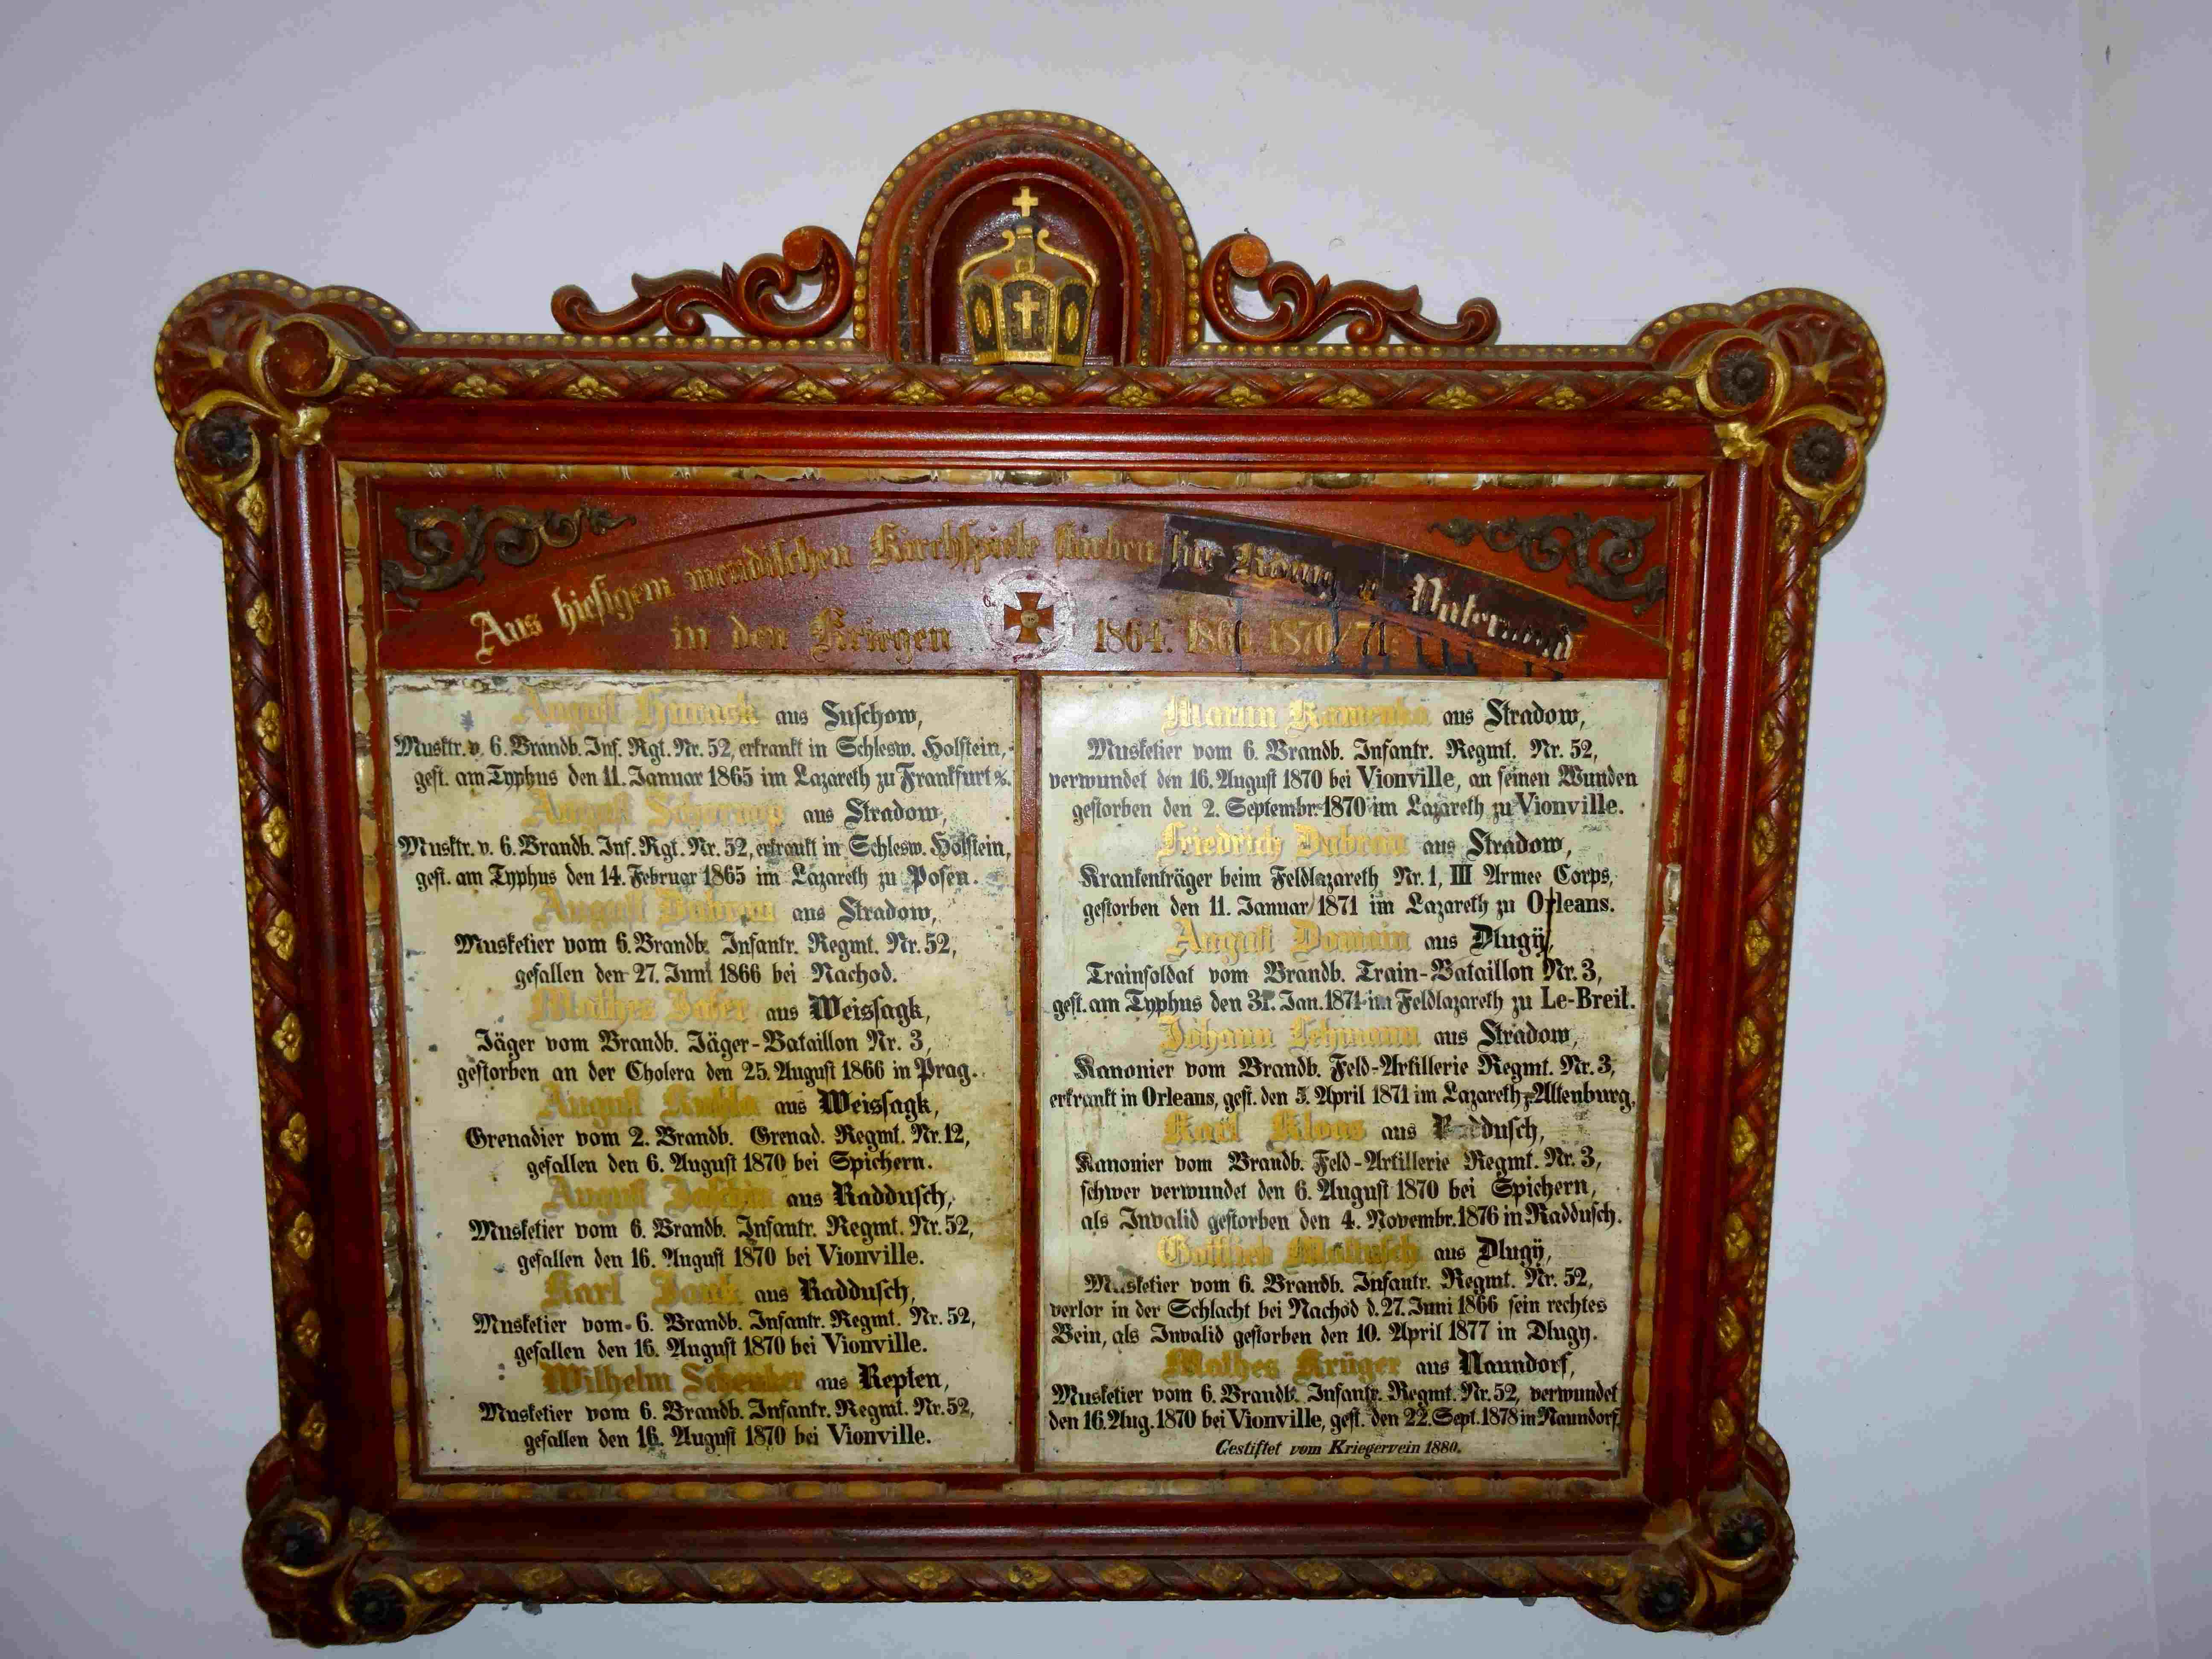 Aus hiesigem wendischen Kirchspiele starben für König u. Vaterland
in den Kriegen 1864. 1866. 1870/71.
August aus Suschow,
Musktr. v. 6. Brandb. Inf. Rgt. Nr. 52, erkrankt in Schlesw. Holstein,
gest. am Typhus den 11. Januar 1865 im Lazareth zu Frankfurt
August aus Stradow,
Musktr. v. 6. Brandb. Inf. Rgt. Nr. 52, erkrankt in Schlesw. Holstein,
gest. am Typhus den 14. Februar 1865 im Lazareth zu Posen.
August Dubrau aus Stradow,
Musketier vom 6. Brandb. Infantr. Regmt. Nr. 52,
gefallen den 27. Juni 1866 bei Nachod.
Mathes aus Weissagk,
Jäger vom Brandb. Jäger-Bataillon Nr. 3,
gestorben an der Cholera den 25. August 1866 in Prag.
August aus Weissagk,
Grenadier vom 2. Brandb. Grenad. Regmt. Nr. 12,
gefallen den 6. August 1870 bei Spichern.
August aus Raddusch,
Musketier vom 6. Brandb. Infantr. Regmt. Nr. 52,
gefallen den 16. August 1870 bei Vionville.
Karl aus Raddusch,
Musketier vom 6. Brandb. Infantr. Regmt. Nr. 52,
gefallen den 16. August 1870 bei Vionville.
Wilhelm aus Repten,
Musketier vom 6. Brandb. Infantr. Regmt. Nr. 52,
gefallen den 16. August 1870 bei Vionville.
Kamenka aus Stradow,
Musketier vom 6. Brandb. Infantr. Regmt. Nr. 52,
verwundet den 16. August 1870 bei Vionville, an seinen Wunden
gestorben den 2. Septembr. 1870 im Lazareth zu Vionville.
Friedrich Dubrau aus Stradow,
Krankenträger beim Feldlazareth Nr. 1, III Armee Corps,
gestorben den 11. Januar 1871 im Lazareth zu Orleans.
August Domain aus Dlugÿ,
Trainsoldat vom Brandb. Train-Bataillon Nr. 3,
gest. am Typhus den 31. Jan. 1871 im Feldlazareth zu Le-Breil.
Johann Lehmann aus Stradow,
Kanonier vom Brandb. Feld-Artillerie Regmt. Nr. 3,
erkrankt in Orleans, gest. den 5. April 1871 im Lazareth z. Altenburg,
Karl Kloas aus Raddusch,
Kanonier vom Brandb. Feld-Artillerie Regmt. Nr. 3,
schwer verwundet den 6. August 1870 bei Spichern,
als Invalid gestorben den 4. Novembr. 1876 in Raddusch.
Gottlieb aus Dlugÿ,
Musketier vom 6. Brandb. Infantr. Regmt. Nr. 52,
verlor in der Schlacht bei Nachod d. 27. Juni 1866 sein rechtes
Bein, als Invalid gestorben den 10. April 1877 in Dlugy.
Mathes Krüger aus Naundorf,
Musketier vom 6. Brandb. Infantr. Regmt. Nr. 52, verwundet
den 16. Aug. 1870 bei Vionville, gest. den 22. Sept. 1878 in Naundorf.
Gestiftet vom Kriegervein 1880.